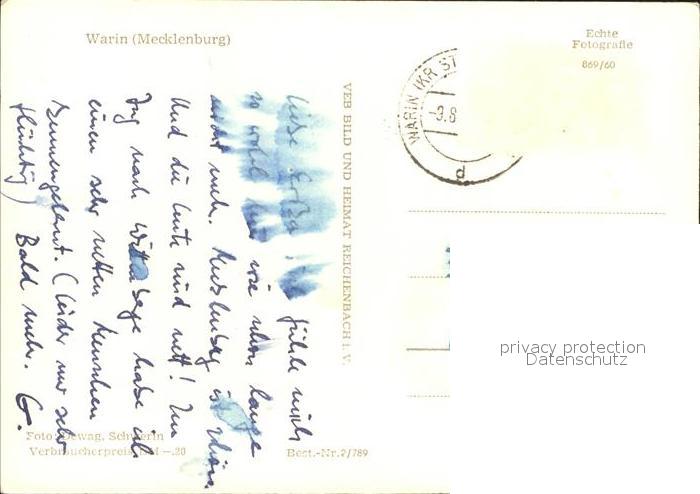 Warin (Mecklenburg)
Echte
Fotografie
869/60
WARIN (KR ST
-9.8
d
VEB BILD UND HEIMAT REICHENBACH i. V.
Liebe fühle mich
so wohl wie schon lange
nicht mehr. Mecklenburg ist schön.
Und die Leute sind nett! Im
Zug nach Wittenberge habe ich
einen sehr netten Menschen
kennengelernt. (Leider nur sehr
flüchtig) Bald mehr. G.
privacy protection
Datenschutz
Foto: Dewag, Schwerin
Verbraucherpreis DM -.20
Best.-Nr. 2/789